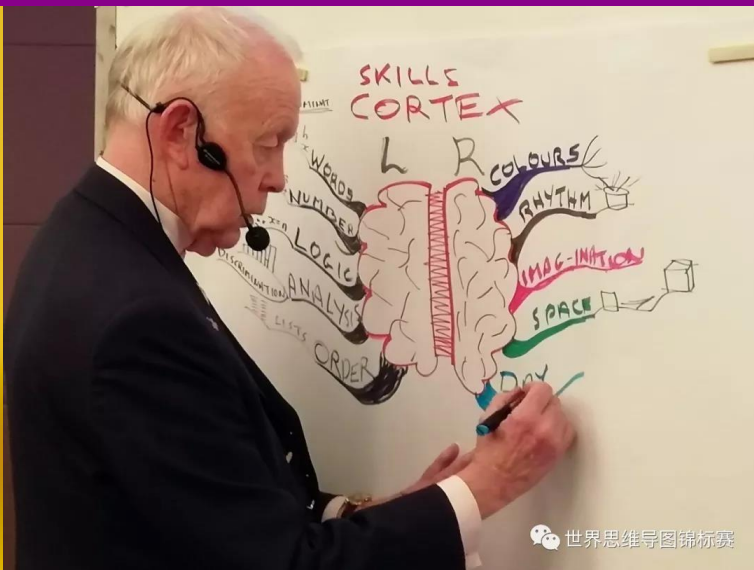 SKILLS
CORTEX
L R
WORDS
NUMBER
LOGIC
DISCRIMINATION
ANALYSIS
LISTS
ORDER
COLOURS
RHYTHM
IMAG-INATION
SPACE
DAY
世界思维导图锦标赛